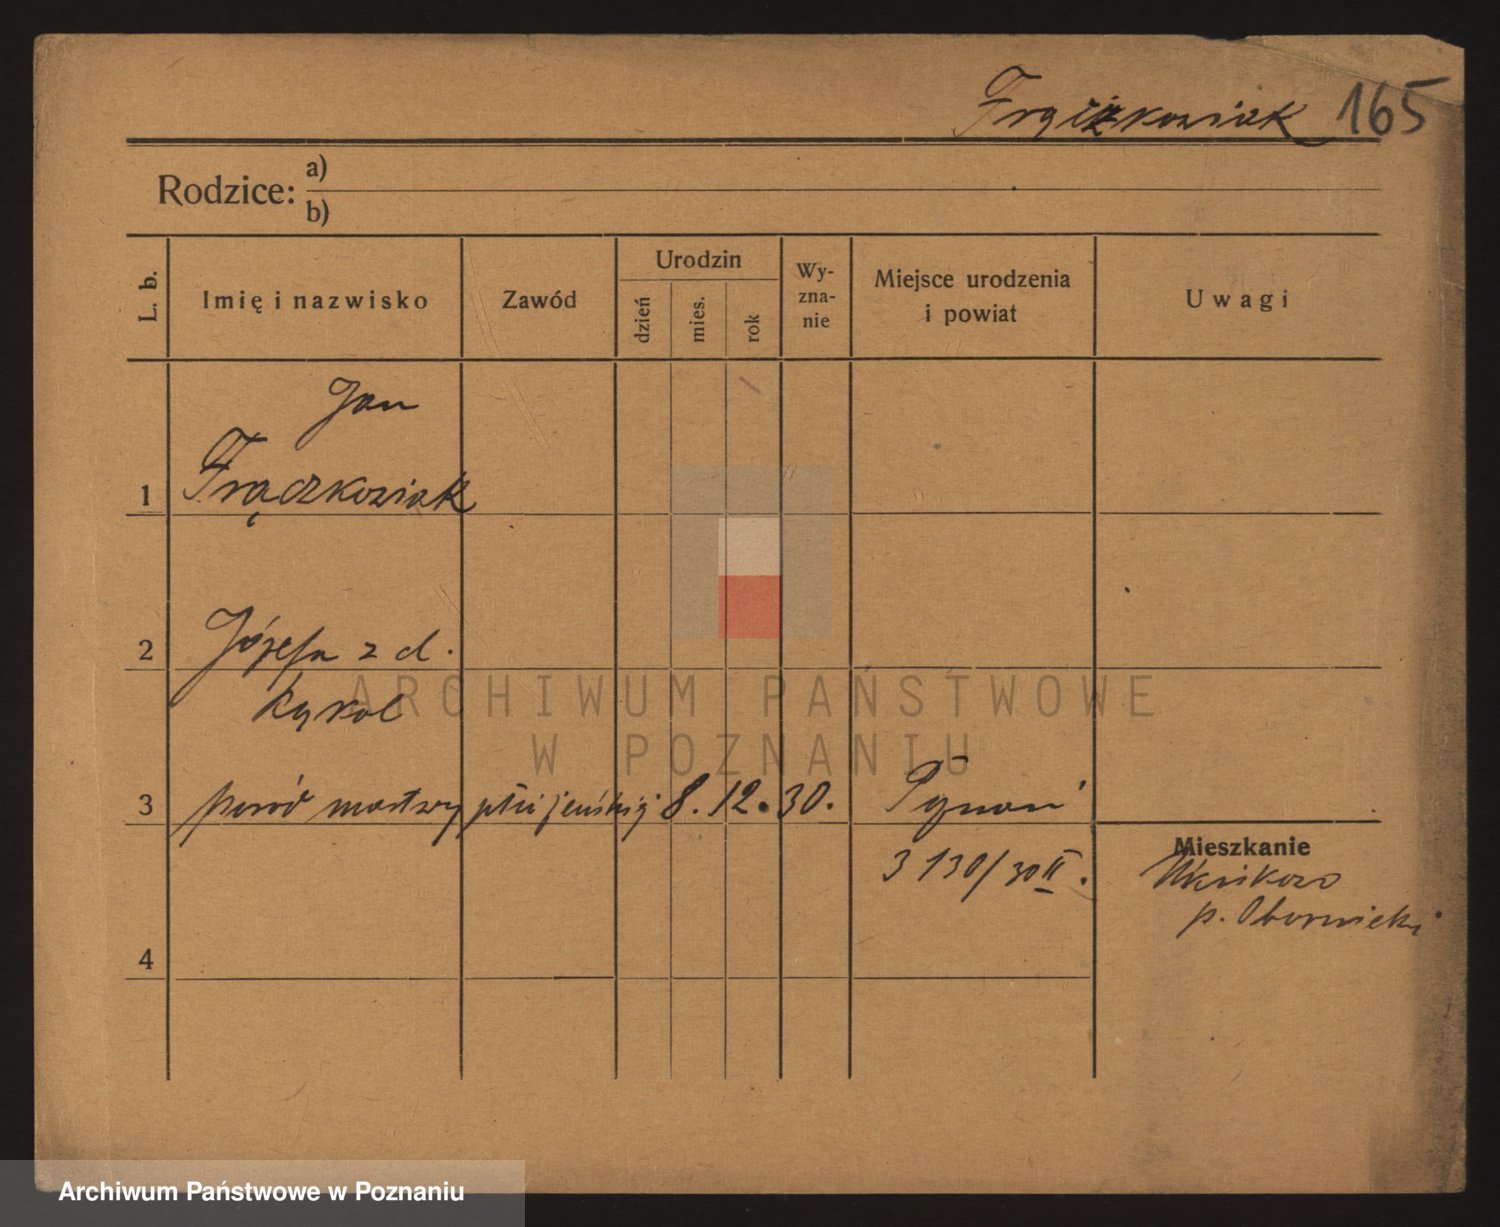 Frączkowiak 165
Rodzice: a)
b)
L. b.
Imię i nazwisko
Zawód
Urodzin
dzień
mies.
rok
Wy-
zna-
nie
Miejsce urodzenia
i powiat
Uwagi
Jan
1 Frączkowiak
2 Józefa z d.
Kąkol
3 poród martwy płci żeńskiej 8. 12. 30. Poznań
3130/30 II.
Mieszkanie
p. Obornicki
4
ARCHIWUM PAŃSTWOWE
W POZNANIU
Archiwum Państwowe w Poznaniu